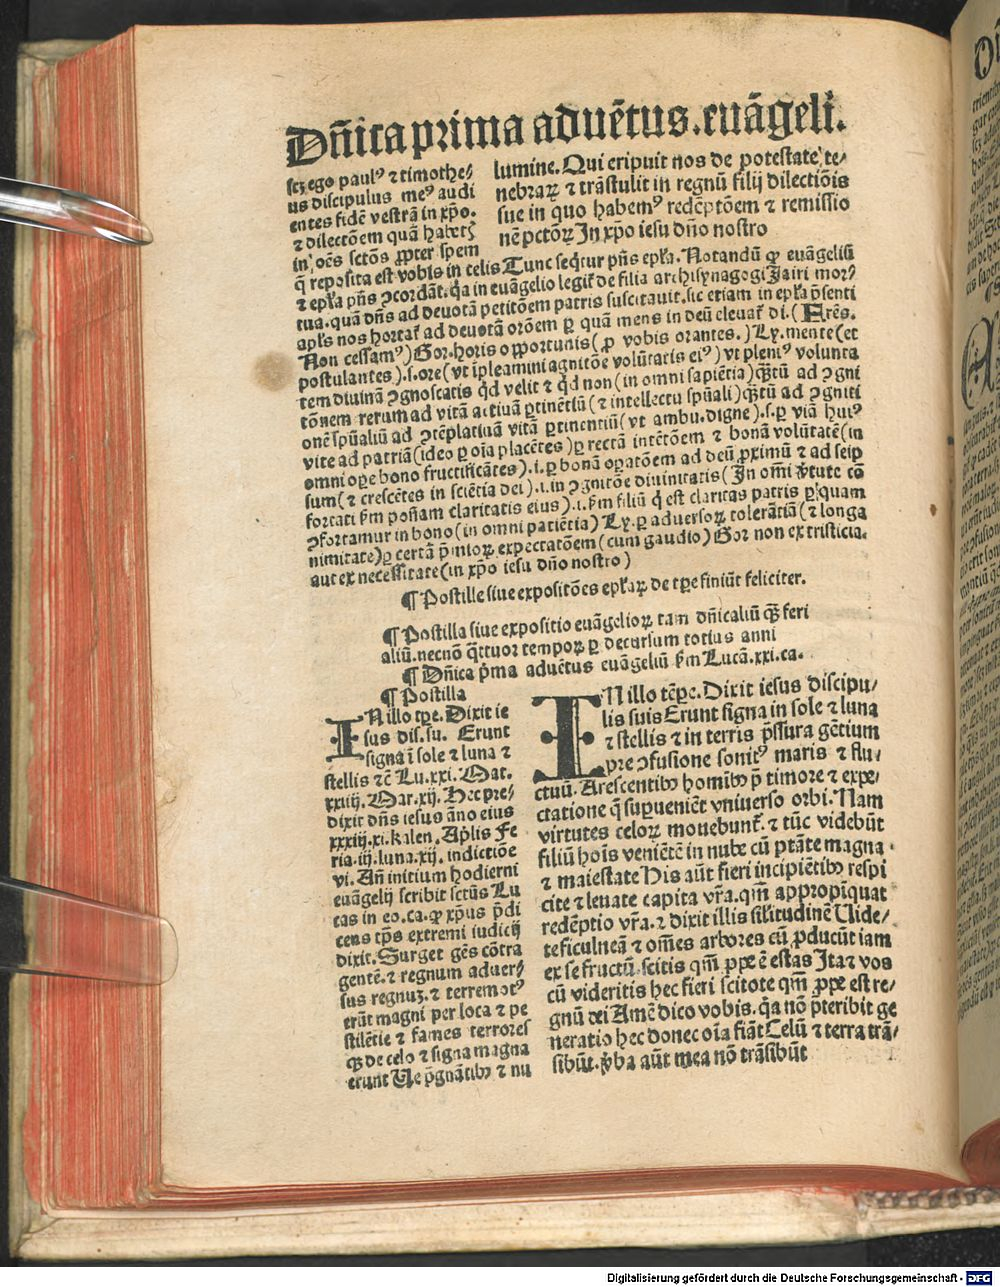 Dñica prima aduẽtus. euãgelĩ.
scȝ ego paulꝰ ⁊ timothe⸗
us discipulus meꝰ audi
entes fidẽ vestrã in xp̃o.
⁊ dilectõem quã habetȝ
in oẽs sctõs ꝓpter spem
lumine. Qui eripuit nos de potestate te⸗
nebraꝝ ⁊ trãstulit in regnũ filij dilectiõis
sue in quo habemꝰ redẽptõem ⁊ remissio
nẽ pctõꝝ In xp̃o iesu dño nostro
q̃ reposita est vobis in celis Tunc seqĩtur pñs epĺa. Notandũ ꝙ euãgeliũ
⁊ epĺa pñs ꝯcordãt. q̃a in euãgelio legit̃ de filia archisynagogi Jairi morꝰ
tua. quã dñs ad deuotã petitõem patris suscitauit. sic etiam in epĺa p̃senti
apĺs nos hortat̃ ad deuotã orõem ꝑ quã mens in deũ eleuat̃ di. (Frẽs.
Non cessamꝰ) Gor. horis opportunis (ꝓ vobis orantes.) Ly. mente (et
postulantes) .s. ore (vt ĩpleamini agnitõe volũtatis eiꝰ) vt pleniꝰ volunta
tem diuinã ꝯgnoscatis qd̃ velit ⁊ qd̃ non (in omni sapiẽtia) q̃ꝫtũ ad ꝯgni
tõnem rerum ad vitã actiuã ꝑtinẽtiũ (⁊ intellectu spũali) q̃ꝫtũ ad ꝯgniti
onẽ spũaliũ ad ꝯtẽplatiuã vitã ꝑtinentiũ (vt ambu. digne) .s. ꝑ viã huiꝰ
vite ad patriã (ideo ꝑ oĩa placẽtes) ꝑ rectã intẽtõem ⁊ bonã volũtatẽ (in
omni oꝑe bono fructificãtes) .i. ꝑ bonã oꝑatõem ad deũ ꝓximũ ⁊ ad seip
sum (⁊ crescẽtes in sciẽtia dei) .i. in ꝯgnitõe diuinitatis (In om̃i ṽtute cõ
fortati ẜm poñam claritatis eius) .i. ẜm filiũ q̃ est claritas patris ꝑ quam
ꝯfortamur in bono (in omni patiẽtia) Ly. ꝑ aduersoꝝ tolerãtiã (⁊ longa
nimitate) ꝑ certã p̃mioꝝ expectatõem (cum gaudio) Gor non ex tristicia.
aut ex necessitate (in xp̃o iesu dño nostro)
¶ Postille siue expositões epĺaꝝ de tꝑe finiũt feliciter.
¶ Postilla siue expositio euãgelioꝝ tam dñicaliũ q̃ꝫ feri
aliũ. necnõ q̃ttuor tempoꝝ ꝑ decursum totius anni
¶ Dñica p̃ma aduẽtus euãgeliũ ẜm Lucã. xxi. ca.
¶ Postilla
IN illo tꝑe. Dixit ie
sus dis. su. Erunt
signa ĩ sole ⁊ luna ⁊
stellis ⁊cẽ Lu. xxi. Mat.
xxiiij. Mar. xij. Hec pre⸗
dixit dñs iesus ãno eius
xxxiij. xi. kalen. Ap̃lis Fe
ria. iij. luna. xij. indictiõe
vi. Añ initium hodierni
euãgelij scribit sctũs Lu
cas in eo. ca. ꝙ xp̃us p̃di
cens tp̃s extremi iudicij
dixit. Surget gẽs cõtra
gentẽ. ⁊ regnum aduer⸗
sus regnuȝ. ⁊ terremotꝰ
erũt magni per loca ⁊ pe
stilẽtie ⁊ fames terrores
qꝫ de celo ⁊ signa magna
erunt Ue p̃gnãtibꝫ ⁊ nu
IN illo tẽꝑe. Dixit iesus discipu⸗
lis suis Erunt signa in sole ⁊ luna
⁊ stellis ⁊ in terris p̃ssura gẽtium
pre ꝯfusione sonitꝰ maris ⁊ flu⸗
ctuũ. Arescentibꝫ homĩbꝫ p̃ timore ⁊ expe⸗
ctatione q̃ suꝑueniẽt vniuerso orbi. Nam
virtutes celoꝝ mouebunt̃. ⁊ tũc videbũt
filiũ hoĩs veniẽtẽ in nube cũ ptãte magna
⁊ maiestate His aũt fieri incipiẽtibꝫ respi
cite ⁊ leuate capita vr̃a. qm̃ appropĩquat
redẽptio vr̃a. ⁊ dixit illis silĩtudinẽ Uide⸗
te ficulneã ⁊ om̃es arbores cũ ꝓducũt iam
ex se fructũ. scitis qm̃ ꝓpe ẽ estas Ita ⁊ vos
cũ videritis hec fieri scitote qm̃ ꝓpe est re⸗
gnũ dei Amẽ dico vobis. q̃a nõ p̃teribit ge
neratio hec donec oĩa fiãt Celũ ⁊ terra trã⸗
sibũt. ṽba aũt mea nõ trãsibũt
Digitalisierung gefördert durch die Deutsche Forschungsgemeinschaft - DFG